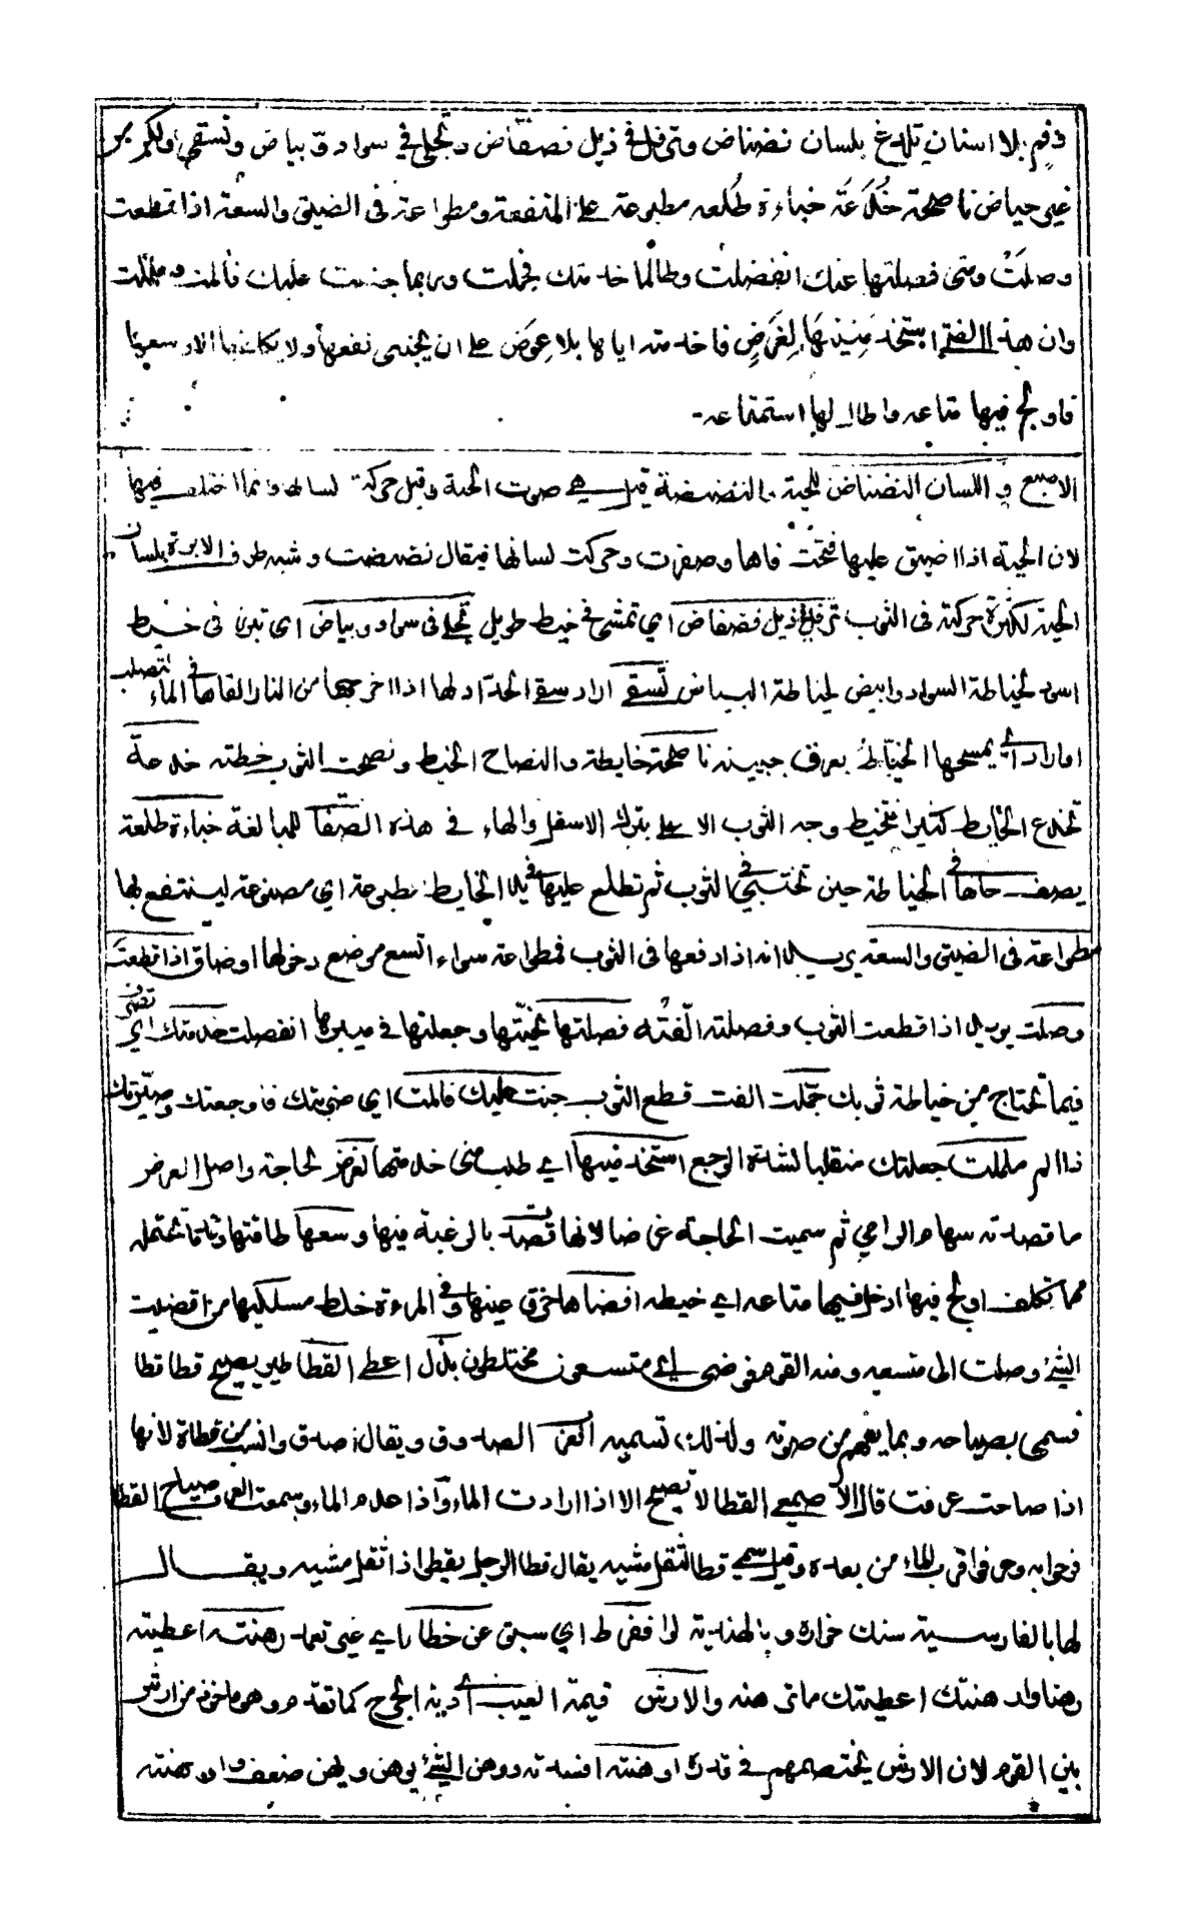 وفم بلا اسنان تلدغ بلسان نضناض وترفل في ذيل فضفاض وتجلى في سواد وبياض وتسقى ولكن من
غير حياض ناصحة خُدَعَة خباءة طُلعه مطبوعة على المنفعة ومطواعة في الضيق والسعة اذا قطعت
وصلَتْ ومتى فصلتها عنك انفصلت وطالما خدمتك فجملت وربما جنت عليك فآلمت ومللت
وان هذا الفتى استخدمنيها لغَرَضٍ فاخدمته اياها بلا عِوَض على ان يجتنى نفعها ولا يكلفها الا وسعها
فاولج فيها متاعه واطال لها استمتاعه
الاصبع و اللسان النضناض للحية والنضنضة قيل هي صوت الحية وقيل حركة لسانها وانما اختلف فيها
لان الحية اذا ضيق عليها فتحت فاها وصفرت وحركت لسانها فيقال نضنضت وشبه طرف الابرة بلسان
الحية لكثرة حركته في الثوب ترفل في ذيل فضفاض اي تمشى في خيط طويل تجلى في سواد وبياض اى تبرز في خيط
اسود لخياطة السواد وابيض لخياطة البياض تسقى اراد سقى الحدّاد لها اذا اخرجها من النار القاها في الماء لتصلب
او اراد أي يمسحها الخيّاط بعرق جبينه ناصحة خايطة والنصاح الخيط ونصحت الثوب خطته خدعة
تخدع الخايط كثيرا فتخيط وجه الثوب الاعلى بترك الاسفل والهاء في هذه الصفا للمبالغة خباءة طلعة
يصف حالها في الخياطة حين تختبي في الثوب ثم تطلع عليها في يد الخايط مطبوعة اي مصنوعة لينتفع بها
مطواعة في الضيق والسعة يريد انه اذا دفعها في الثوب فمطواعة سواء اتسع موضع دخولها او ضاق اذا قطعت
وصلت يريد اذا قطعت الثوب وفصلته الّفته فصلتها نحيّتها وجعلتها في ميبرها انفصلت خدمتك اي تصرف
فيما تحتاج من خياطة ثوبك جمّلت الفت قطع الثوب جنت عليك فآلمت اي ضربتك فاوجعتك وصيّرتك
ذا الم مللت جعلتك متقلبا لشدة الوجع استخدمنيها اي طلب منى خدمتها لغرض لحاجة واصل الغرض
ما قصدته سهام الرامي ثم سميت الحاجة غرضا لانها قصدت بالرغبة فيها وسعها طاقتها وما تحتمل
مما تكلف اولج فيها ادخل فيها متاعه اي خيطه افضاها خرق عينها وفي المراءة خلط مسلكيها من افضيت
الشئ وصلت الى متسعه ومنه القوم فوضى اي متسعون مختلطون بذل اعطى القطا طير يصيح قطا قطا
فسمى بصياحه وبما يفهم من صوته ولذلك تسميه العرب الصدوق ويقال اصدق وانسب من قطاة لانها
اذا صاحت عرفت قال الاصمعي القطا لا تصيح الا اذا ارادت الماء واذا عدم الماء وسمعت العرب صياح القطا
فرحوا به وعرفوا قرب الماء من بعده وقيل سمي قطا لثقل مشيه يقال قطا الرجل يقطو اذا ثقل مشيه ويقال
لها بالفارسية سنك خواره وبالهندية لوا ففرط اي سبق عن خطا اي غير تعمد رهنته اعطيته
رهنا وارهنتك اعطيتك ماترهنه والارش قيمة العيب أو دية الجرح كما تقدم وهو ماخوذ من ارش
بين القوم لان الارش يختصمهم في قدره اوهنته افسدته ووهن الشئ يوهن ويهن ضعف واوهنته